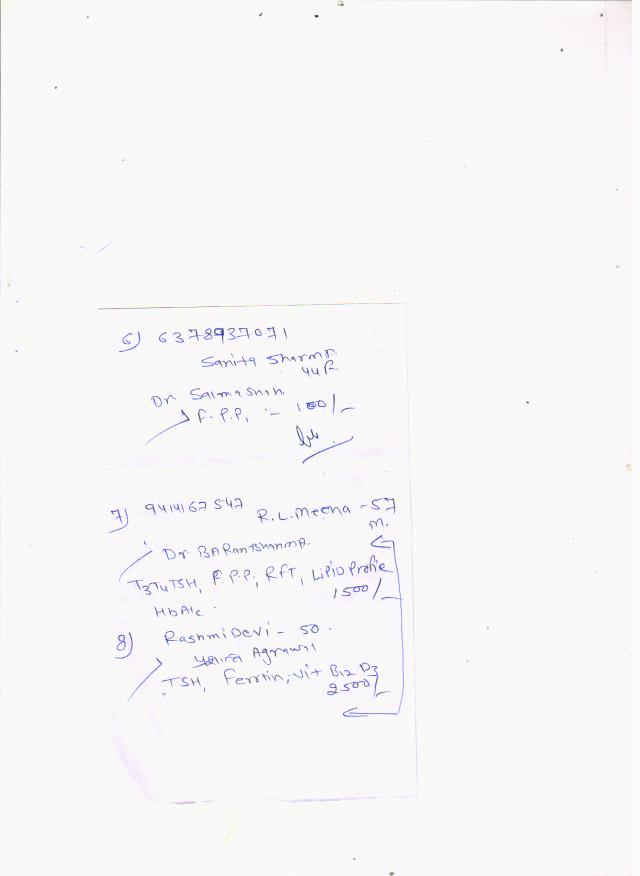 6) 6378937071
Sanita Sharma
44 F
Dr Salma Shah
F. P.P, :- 100/-
7) 9414167547 R.L. Meena - 57
m.
Dr
T3T4TSH, F.P.P, RFT, LiPiD Profie
1500/-
HbA1c.
8) Rashmi Devi - 50.
Agrawal
TSH, Ferrtin, vit B12 D3
2500/-